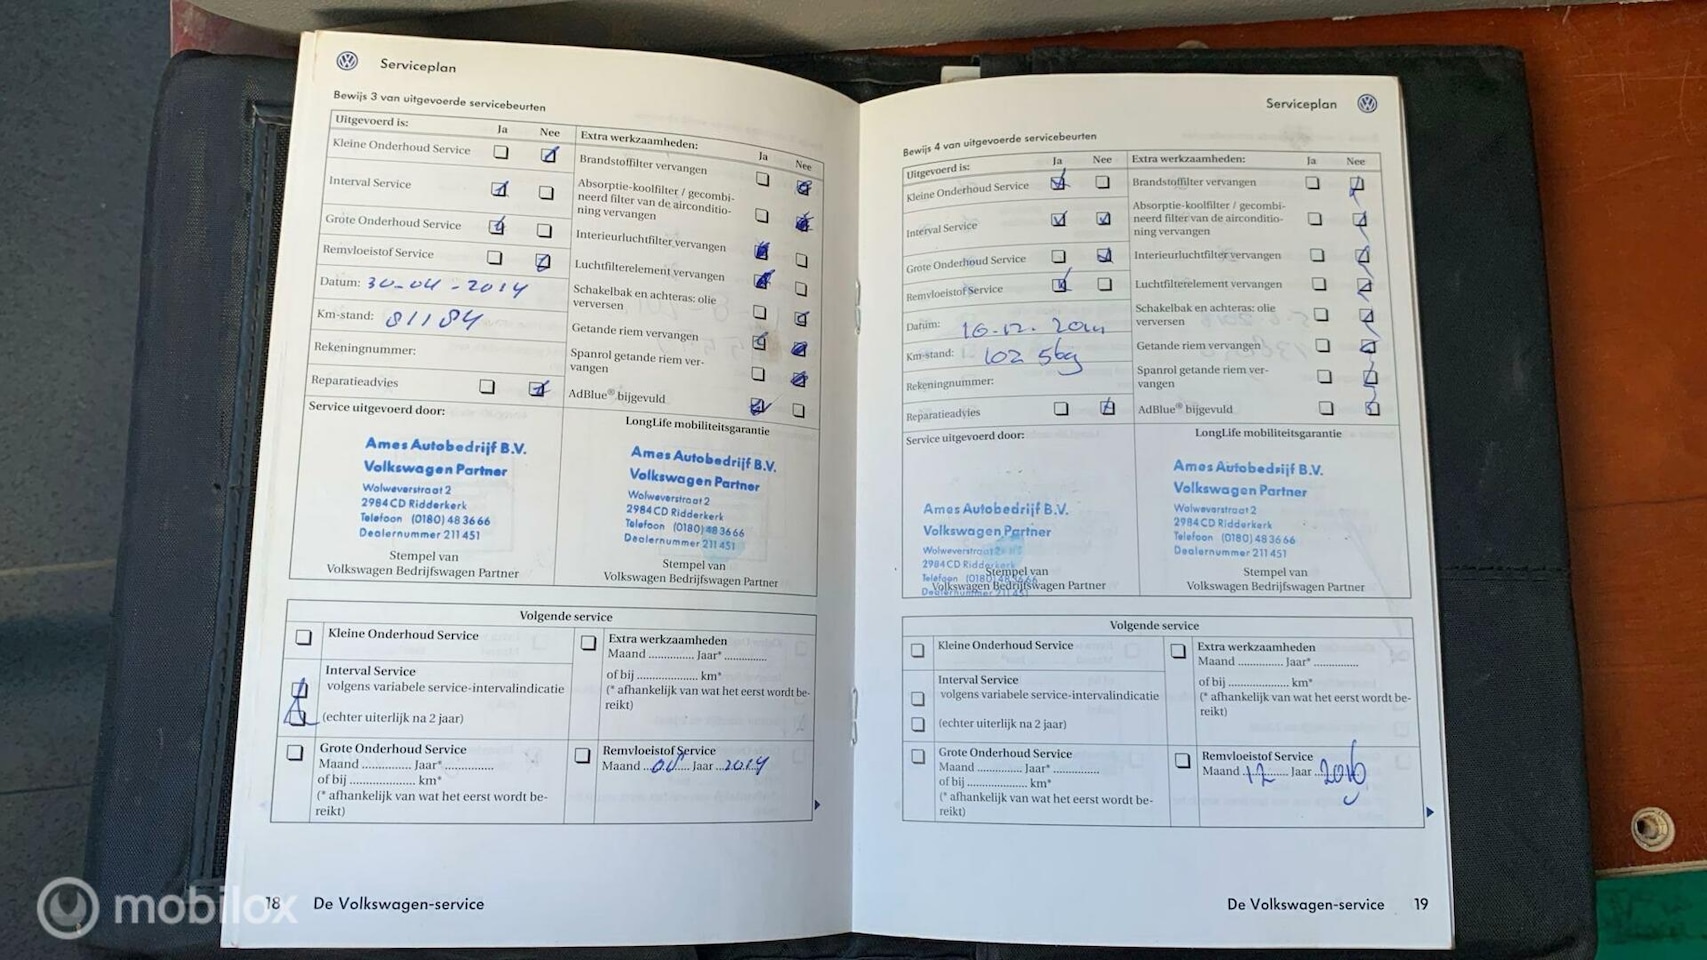 Serviceplan
Bewijs 3 van uitgevoerde servicebeurten
Uitgevoerd is:
Ja
Nee
Kleine Onderhoud Service
Interval Service
Grote Onderhoud Service
Remvloeistof Service
Datum: 30-04-2014
Km-stand: 81184
Rekeningnummer:
Reparatieadvies
Extra werkzaamheden:
Ja
Nee
Brandstoffilter vervangen
Absorptie-koolfilter / gecombi-
neerd filter van de airconditio-
ning vervangen
Interieurluchtfilter vervangen
Luchtfilterelement vervangen
Schakelbak en achteras: olie
verversen
Getande riem vervangen
Spanrol getande riem ver-
vangen
AdBlue® bijgevuld
Service uitgevoerd door:
Ames Autobedrijf B.V.
Volkswagen Partner
Wolweverstraat 2
2984CD Ridderkerk
Telefoon (0180) 48 36 66
Dealernummer 211 451
Stempel van
Volkswagen Bedrijfswagen Partner
LongLife mobiliteitsgarantie
Ames Autobedrijf B.V.
Volkswagen Partner
Wolweverstraat 2
2984CD Ridderkerk
Telefoon (0180) 48 36 66
Dealernummer 211 451
Stempel van
Volkswagen Bedrijfswagen Partner
Volgende service
Kleine Onderhoud Service
Interval Service
volgens variabele service-intervalindicatie
(echter uiterlijk na 2 jaar)
Grote Onderhoud Service
Maand .............. Jaar* ..............
of bij .................... km*
(* afhankelijk van wat het eerst wordt be-
reikt)
Extra werkzaamheden
Maand .............. Jaar* ..............
of bij .................... km*
(* afhankelijk van wat het eerst wordt be-
reikt)
Remvloeistof Service
Maand Jaar 2014
18 De Volkswagen-service
Serviceplan
Bewijs 4 van uitgevoerde servicebeurten
Uitgevoerd is:
Ja
Nee
Kleine Onderhoud Service
Interval Service
Grote Onderhoud Service
Remvloeistof Service
Datum: 16.12.
Km-stand: 102
Rekeningnummer:
Reparatieadvies
Extra werkzaamheden:
Ja
Nee
Brandstoffilter vervangen
Absorptie-koolfilter / gecombi-
neerd filter van de airconditio-
ning vervangen
Interieurluchtfilter vervangen
Luchtfilterelement vervangen
Schakelbak en achteras: olie
verversen
Getande riem vervangen
Spanrol getande riem ver-
vangen
AdBlue® bijgevuld
Service uitgevoerd door:
Ames Autobedrijf B.V.
Volkswagen Partner
Wolweverstraat 2
2984CD Ridderkerk
Stempel van
Telefoon (0180) 48 36 66
Volkswagen Bedrijfswagen Partner
Dealernummer 211 451
LongLife mobiliteitsgarantie
Ames Autobedrijf B.V.
Volkswagen Partner
Wolweverstraat 2
2984CD Ridderkerk
Telefoon (0180) 48 36 66
Dealernummer 211 451
Stempel van
Volkswagen Bedrijfswagen Partner
Volgende service
Kleine Onderhoud Service
Interval Service
volgens variabele service-intervalindicatie
(echter uiterlijk na 2 jaar)
Grote Onderhoud Service
Maand .............. Jaar* ..............
of bij .................... km*
(* afhankelijk van wat het eerst wordt be-
reikt)
Extra werkzaamheden
Maand .............. Jaar* ..............
of bij .................... km*
(* afhankelijk van wat het eerst wordt be-
reikt)
Remvloeistof Service
Maand 12 Jaar 2016
De Volkswagen-service 19
mobilox